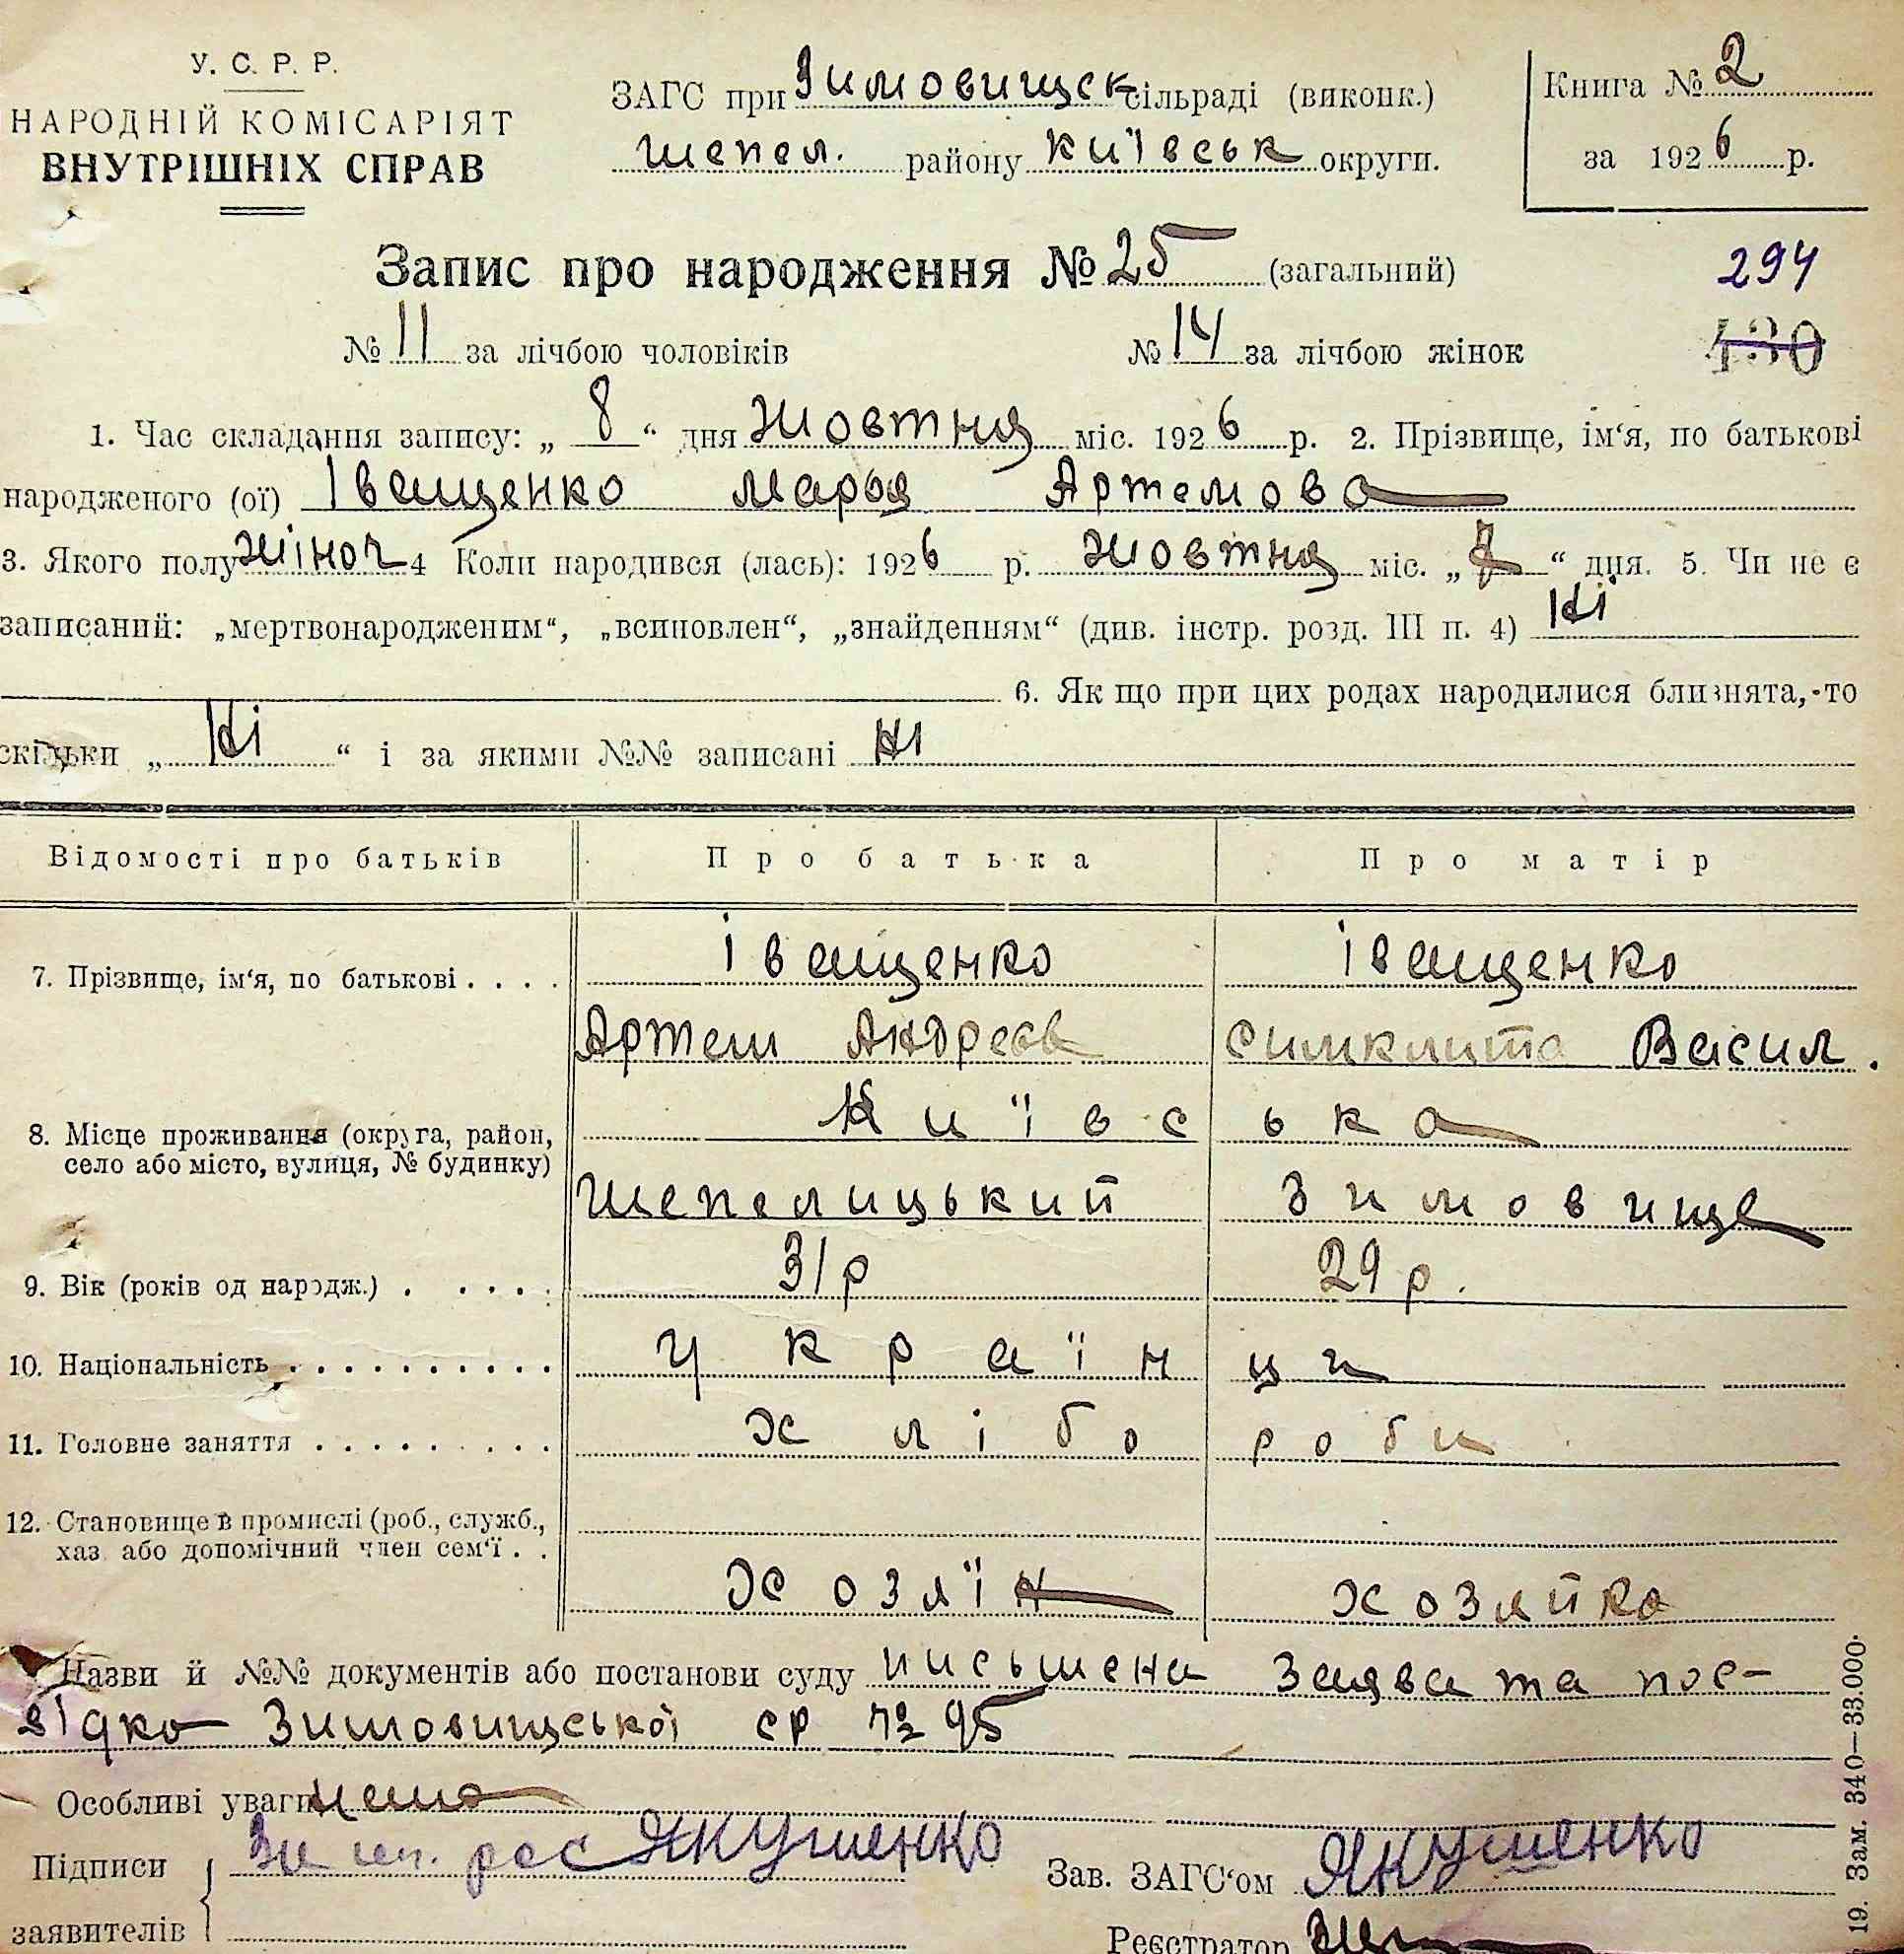 У. С. Р. Р.
НАРОДНІЙ КОМІСАРІЯТ
ВНУТРІШНІХ СПРАВ
ЗАГС при Зимовищск сільраді (виконк.)
Шепел. району Київськ округи.
Книга № 2
за 1926 р.
Запис про народження № 25 (загальний)
294
№ 11 за лічбою чоловіків № 14 за лічбою жінок
430
1. Час складання запису: „ 8 “ дня жовтня міс. 1926 р. 2. Прізвище, ім‘я, по батькові
народженого (ої) Іващенко Марья Артемова
3. Якого полу жіноч 4 Коли народився (лась): 1926 р. жовтня міс. „ 7 “ дня. 5. Чи не є
записаний: „мертвонародженим“, „всиновлен“, „знайденням“ (див. інстр. розд. III п. 4) Ні
6. Як що при цих родах народилися близнята, то
скільки „ Ні “ і за якими №№ записані Ні
Відомості про батьків Про батька Про матір
7. Прізвище, ім‘я, по батькові . . . . Іващенко Іващенко
Артем Андреєв Симклита Васил.
8. Місце проживання (округа, район, Київська
село або місто, вулиця, № будинку)
Шепелицький Зимовище
9. Вік (років од народж.) . . . . . 31 р 29 р.
10. Національність . . . . . . . . . . українци
11. Головне заняття . . . . . . . . . хлібороби
12. Становище в промислі (роб., служб.,
хаз. або допомічний член сем‘ї . .
Хозяїн хозяйка
Назви й №№ документів або постанови суду письмена заява та пос-
відка Зимовищської ср № 95
Особливі уваги нема
Підписи Якушенко Зав. ЗАГС‘ом Якушенко
заявителів Реєстратор
19. Зам. 340—33.000.